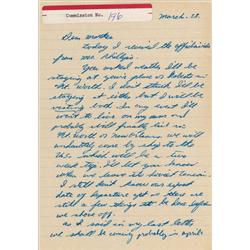 Commission No. 196
March. 28.
Dear mother
today I recived the affidavit
from Mr. Phillips.
You asked weather I'll be
staying at your place or Roberts in
Ft. Worth. I don't think I'll be
staying at either but I will be
visiting both. In any event I'll
want to live on my own and
probably will finally live in
Ft Worth or New Orleans. we will
undoubtly come by ship to the
U.S. which will be a
I'll let you know
when we leave the Soviet Union.
I still don't know our exact
date of departure yet as there are
still a few things to be done before
we shove off.
as I said in my last letter
we shall be coming probably in april